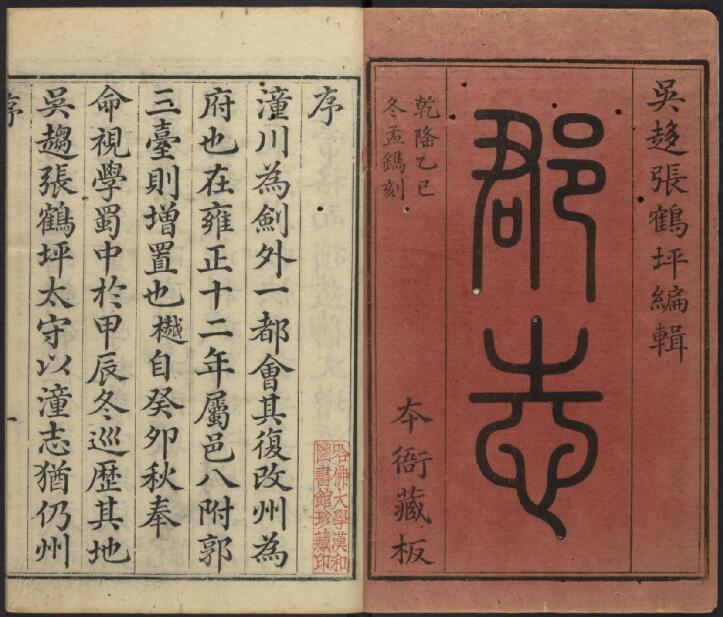 吳趨張鶴坪編輯
郡志
乾隆乙巳
冬孟鐫刻
本衙藏板
序
潼川為劍外一都會其復改州為
府也在雍正十二年屬邑八附郭
三臺則增置也樾自癸卯秋奉
命視學蜀中於甲辰冬巡歷其地
吳趨張鶴坪太守以潼志猶仍州
序
一
哈佛大學漢和
圖書館珍藏印